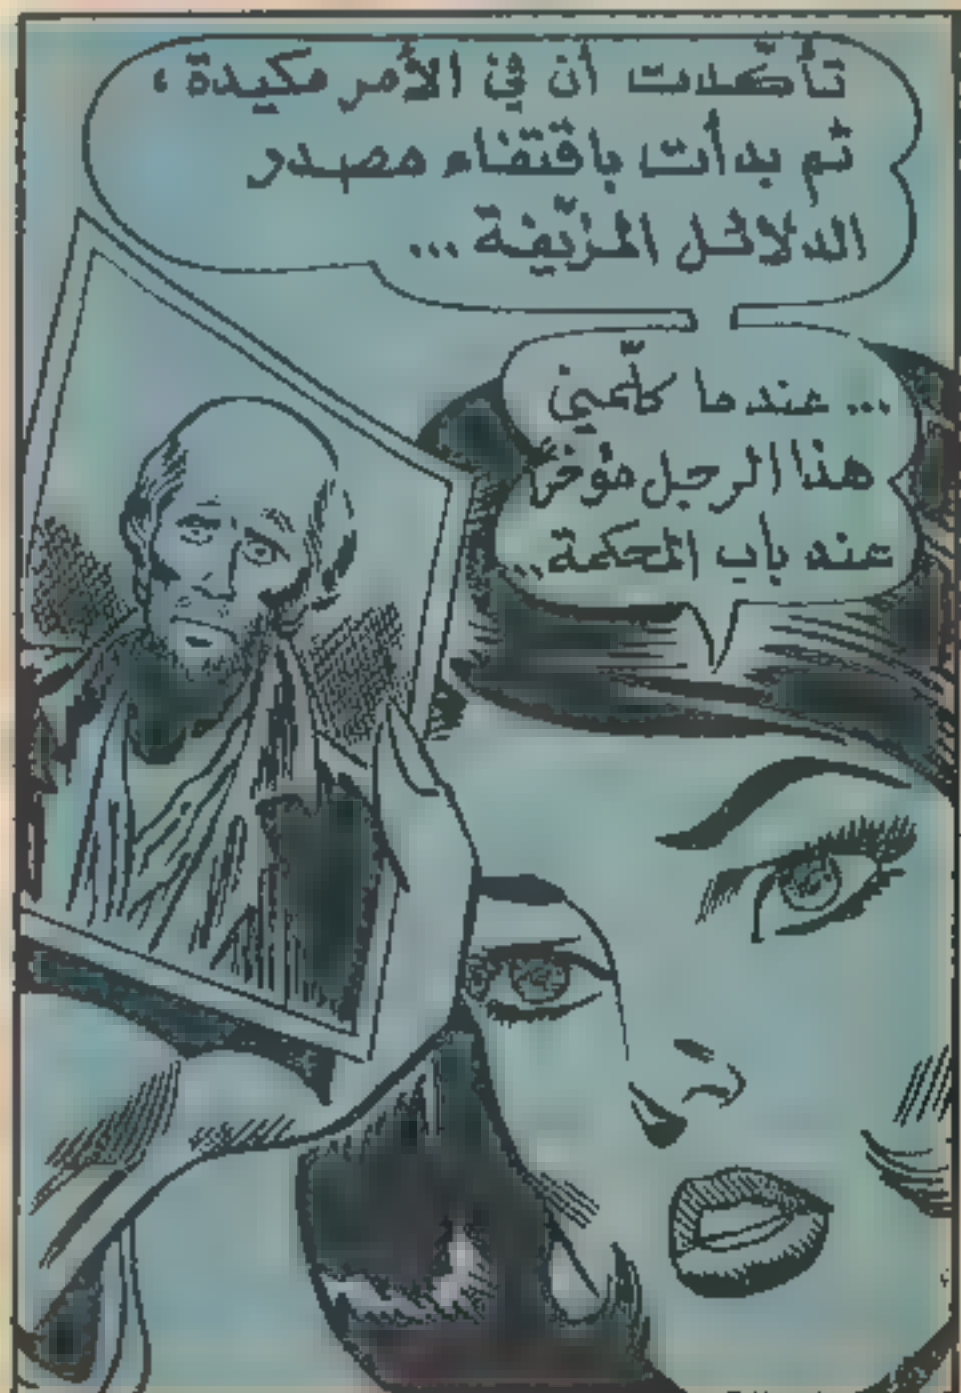 تأكّدت أن في الأمر مكيدة ،
ثم بدأت باقتفاء مصدر
الدلائل المزيّفة ...
... عندما كلّمني
هذا الرجل مؤخرًا
عند باب المحكمة ..